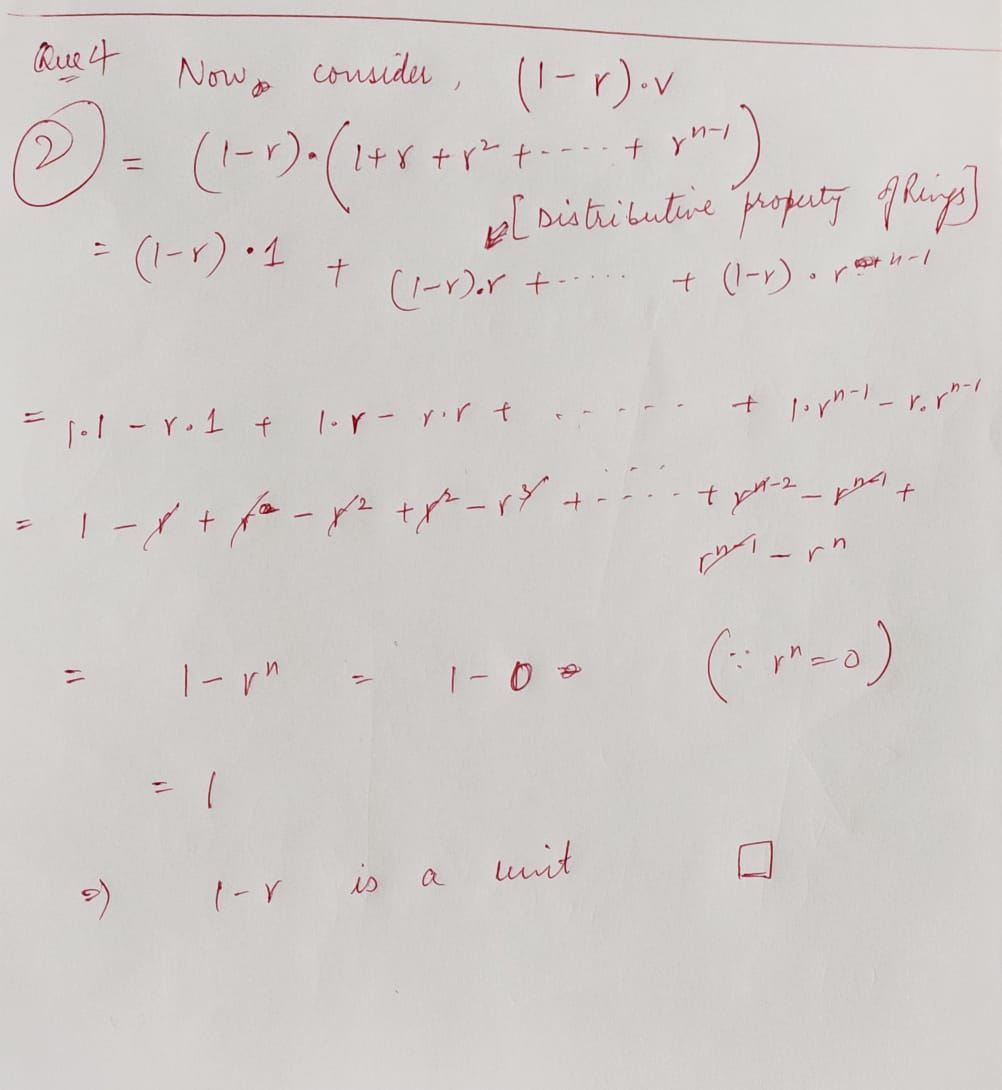 Que 4 Now, consider, (1-r).v
② = (1-r).(1+r+r²+.....+r^{n-1})
[Distributive property of Rings]
= (1-r).1 + (1-r).r +...... + (1-r).r^{n-1}
= 1.1 - r.1 + 1.r - r.r + ...... + 1.r^{n-1} - r.r^{n-1}
= 1 - r + r - r² + r² - r³ + ..... + r^{n-2} - r^{n-1} +
r^{n-1} - r^n
= 1 - r^n = 1 - 0 (∵ r^n = 0)
= 1
⇒ 1-r is a unit □